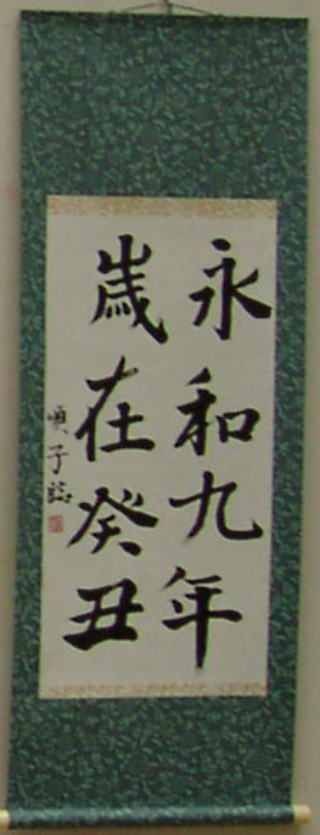 永和九年
歳在癸丑
順子臨